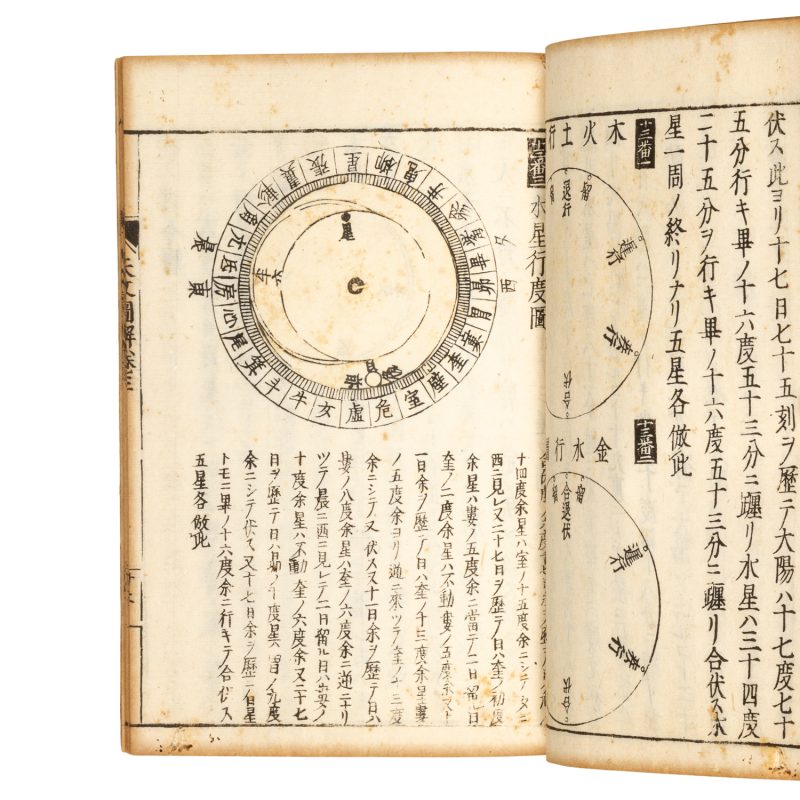 伏ス此ヨリ十七日七十五刻ヲ歷テ大陽ハ十七度七十
五分行キ畢ノ十六度五十三分ニ躔リ水星ハ三十四度
二十五分ヲ行キ畢ノ十六度五十三分ニ躔リ合伏ス水
星一周ノ終リナリ五星各倣此
十三番一
木火土行
留
退行
留
遲行
疾行
合伏
十三番二
金水行
留
合退伏
留
遲行
疾行
合伏
水星行度圖
角亢氐房心尾箕斗牛女虚危室壁奎婁胃昴畢觜參井鬼柳星張翼軫
夕西
晨東
十四度余星ハ室ノ十五度余ニシテ夕ニ
西ニ見ヘ又二十七日ヲ歷テ日ハ奎ノ初度
余星ハ婁ノ五度余ニ當テ一日留ル日
奎ノ二度余星ハ不動婁ノ五度余又十
一日余ヲ歷テ日ハ奎ノ十三度余星婁
ノ五度余ヨリ逆ニ來ツテ奎ノ十三度
余ニシテ又伏ス又十一日余ヲ歷テ日ハ
婁ノ八度余星ハ奎ノ六度余ニ逆ニナリ
ツテ晨ニ西ニ見レテ二日留ル日ハ婁ノ
十度余星ハ不動奎ノ六度余又二十七
日ヲ歷テ日ハ
余ニシテ伏ス又十七日余ヲ歷テ日星
トモニ畢ノ十六度余ニ行キテ合伏ス
五星各倣此
天文圖解卷三